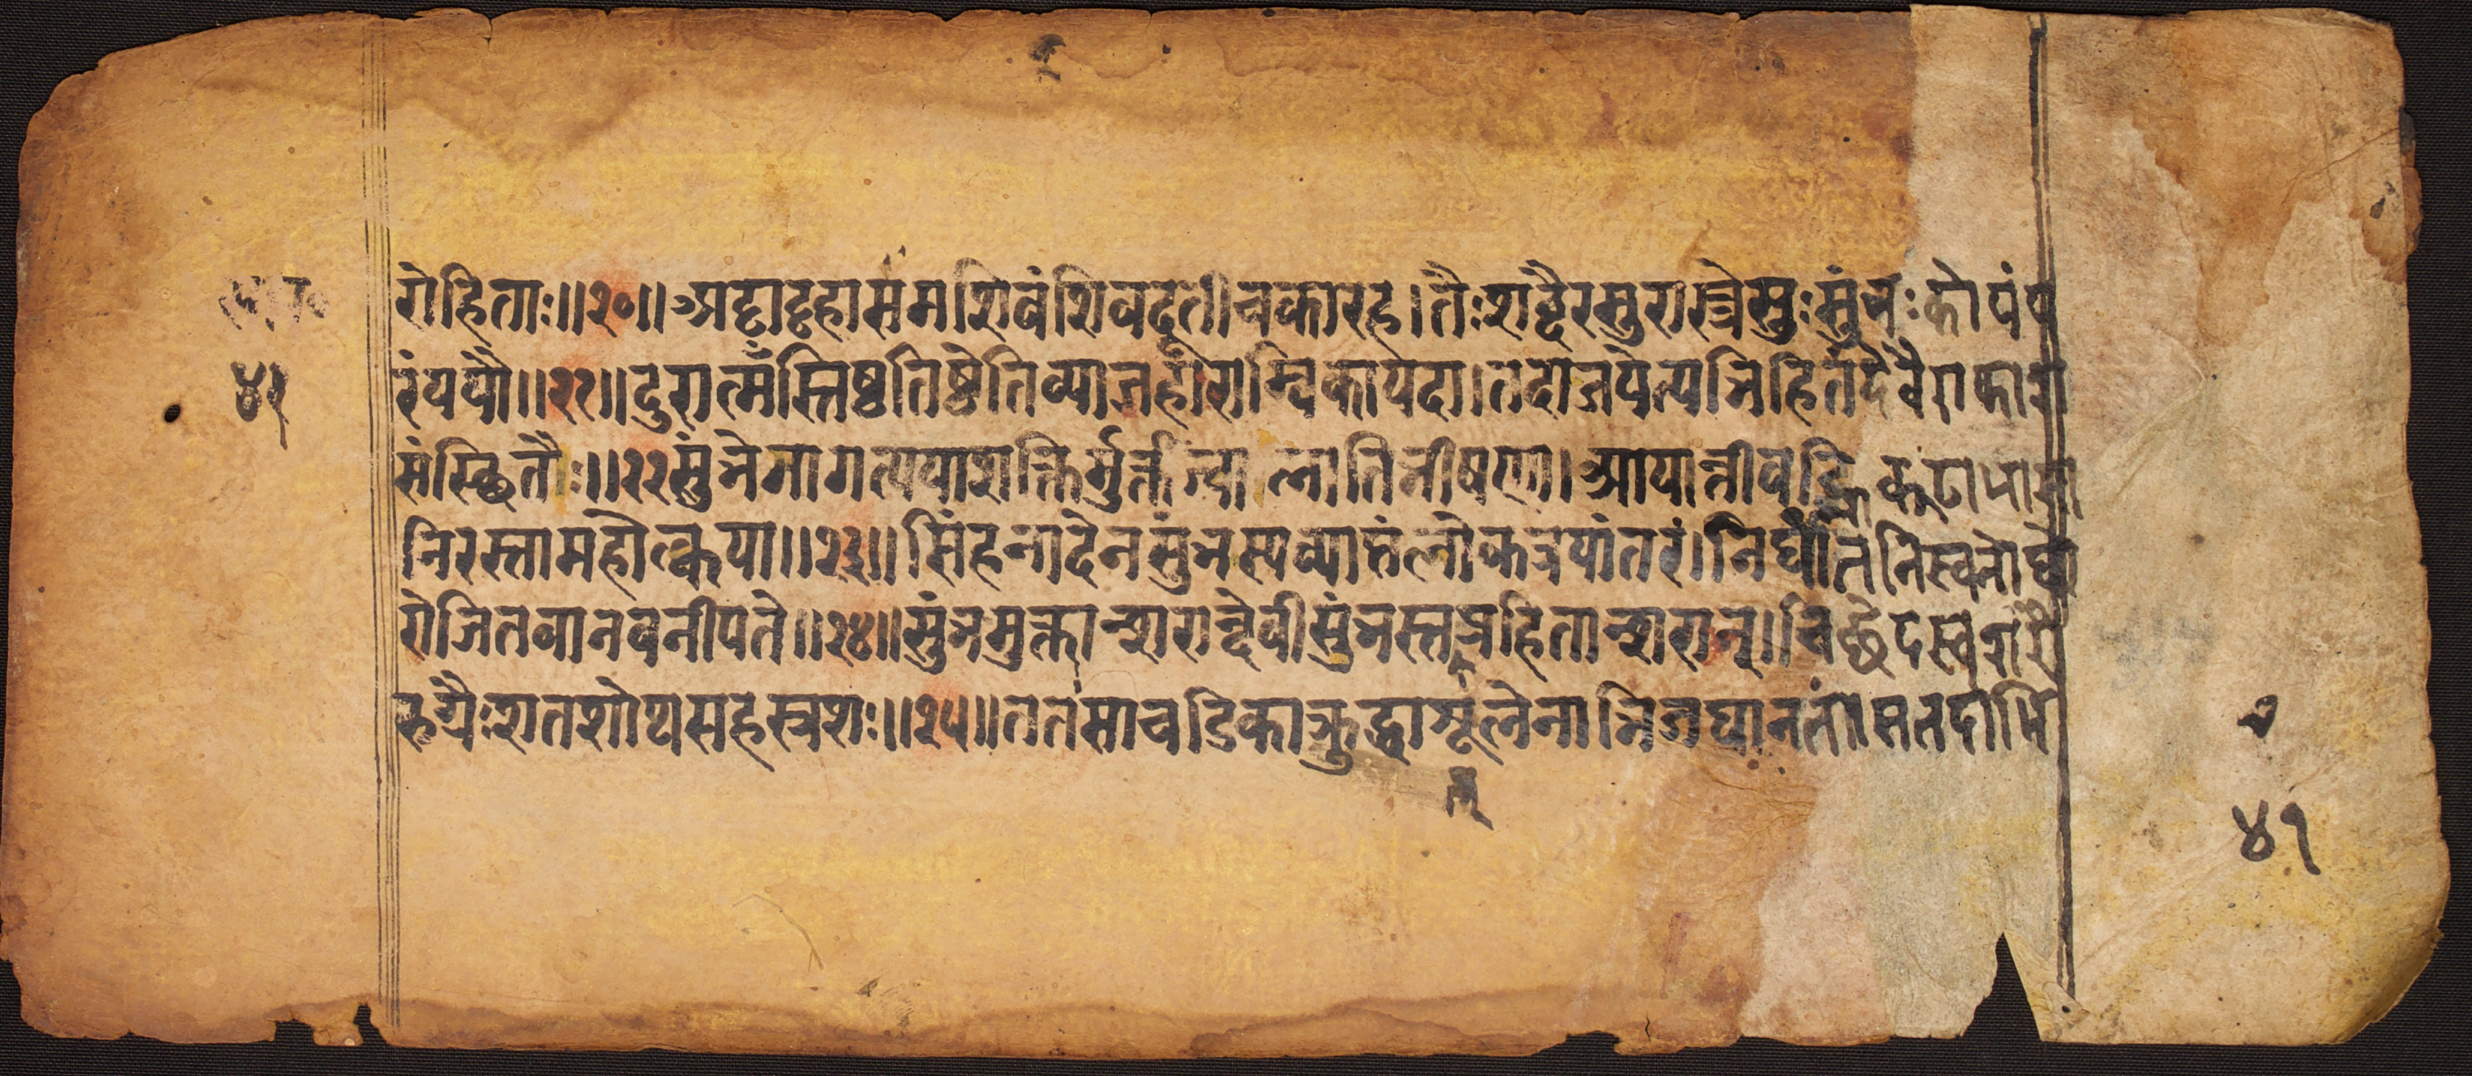 ४१
रोहिताः॥२०॥अट्टाट्टहासमशिवंशिवदूतीचकारह।तैःशब्दैरसुरास्त्रेसुःसुंभःकोपंप
रंययौ॥२१॥दुरात्मँस्तिष्ठतिष्ठेतिव्याजहारांम्बिकायदा।तदाजयेत्यभिहितंदेवैराकाश
संस्छितैः॥२२सुंभेनागत्ययाशक्तिर्मुक्ताज्वालातिभीषणा।आयान्तीवह्निकूटाभासा
निरस्तामहोल्कया॥२३॥सिंहनादेनसुंभस्यव्याप्तंलोकत्रयांतरं।निर्घातनिस्वनोघो
रोजितवानवनीपते॥२४॥सुंभमुक्तान्शरान्देवीसुंभस्तत्प्रहितान्शरान्।चिछेदस्वशरै
रुग्रैःशतशोथसहस्त्रशः॥२५॥ततंसाचडिकाक्रुद्धाशूलेनाभिजघानतं।सतदाभि
४१